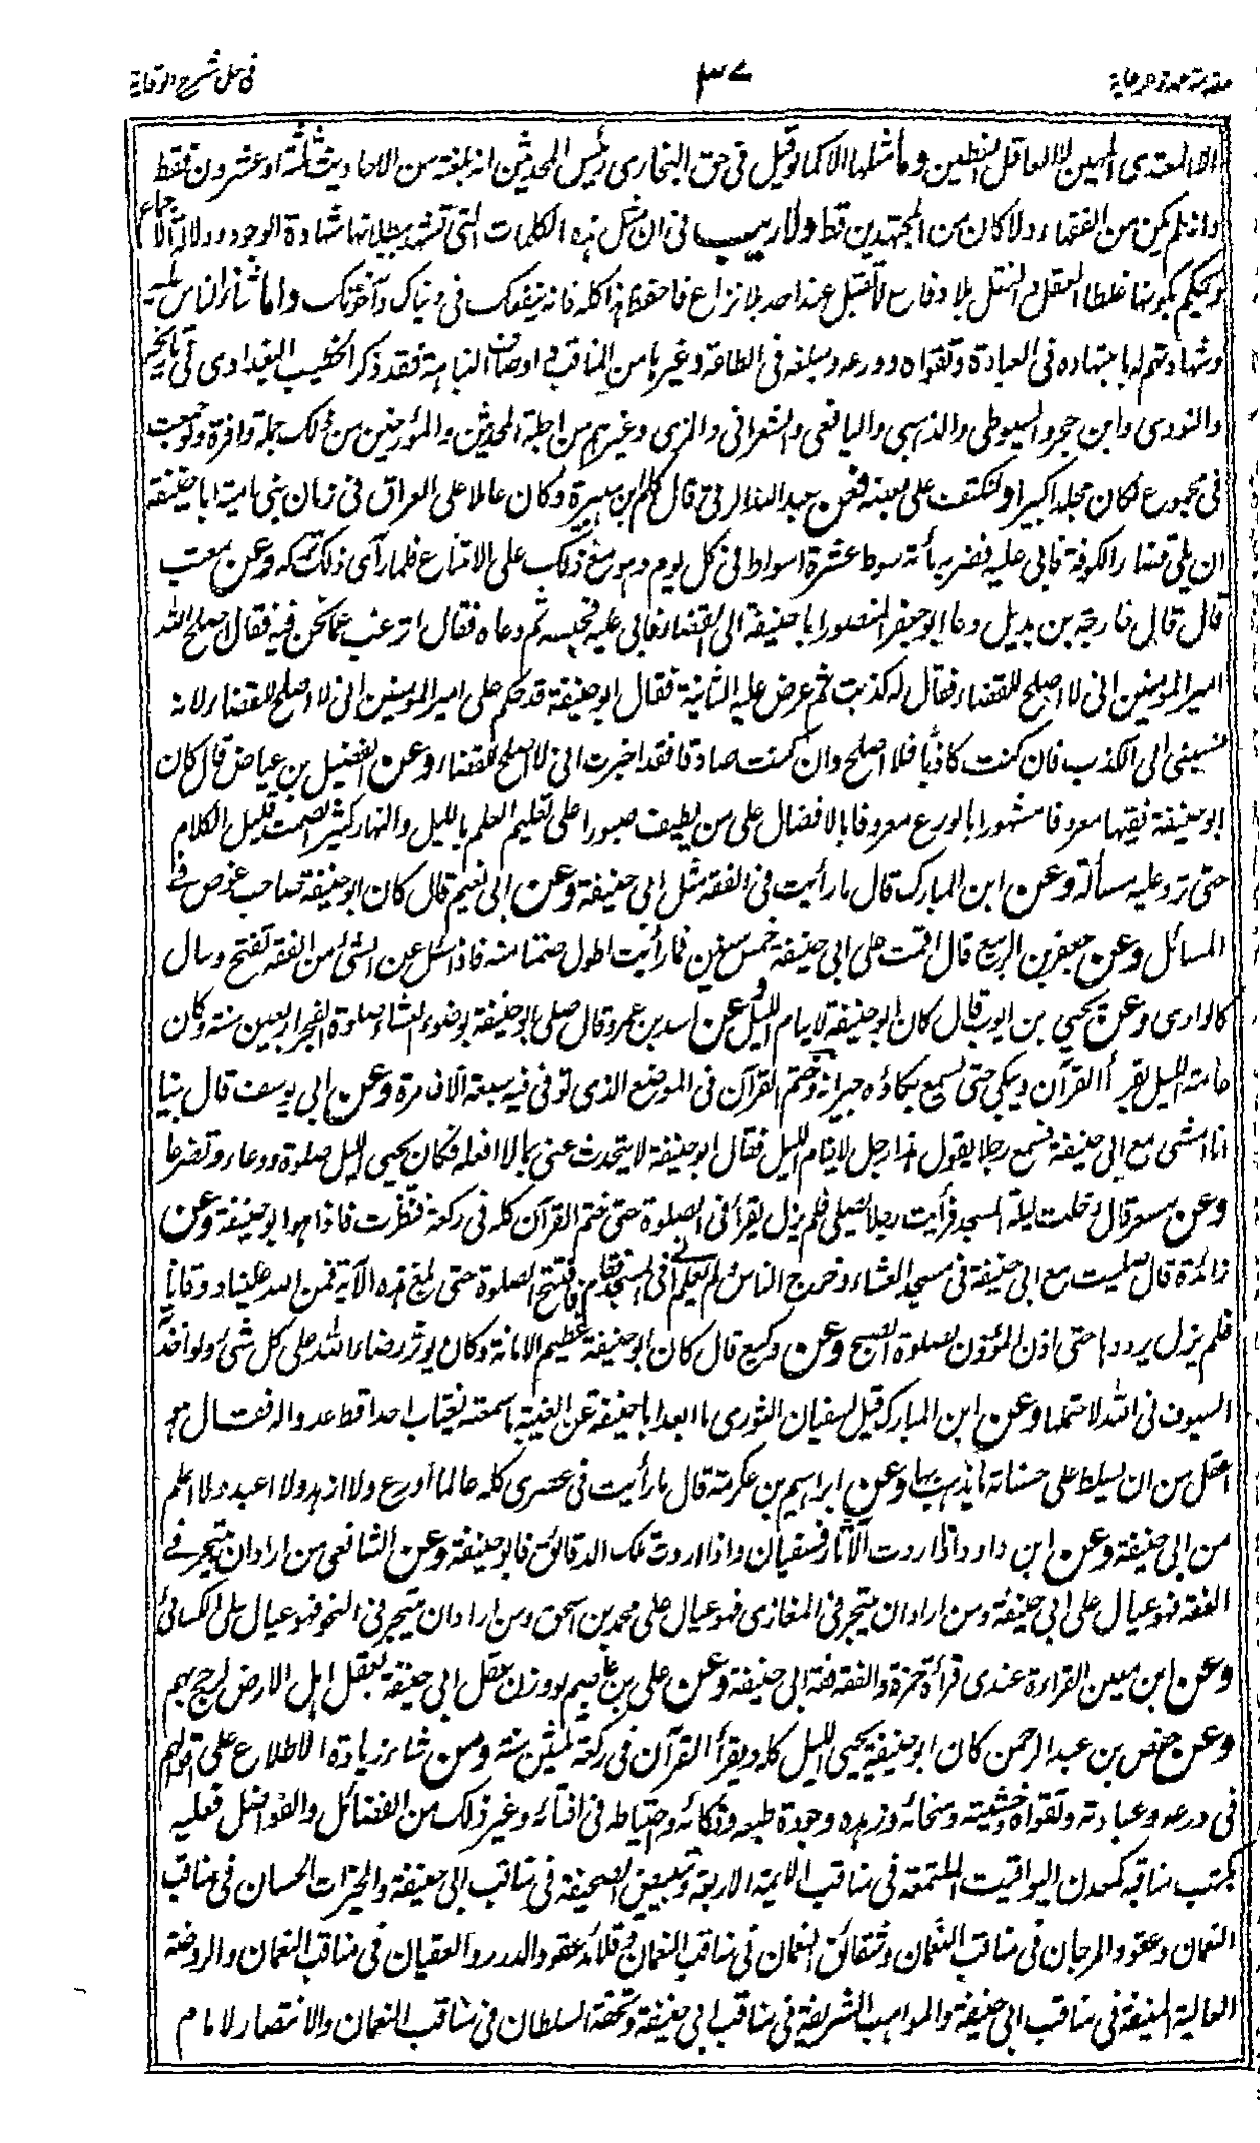 مقدمة عمدة الرعاية
٣٧
في حل شرح الوقاية
الا المعتدى المهين لا العاقل الفطين وما مثلها الا كما لو قيل في حق البخارى رئيس المحدثين انه بلغه من الاحاديث ثلثة او عشرون فقط
وانه لم يكن من الفقهاء ولا كان من المجتهدين قط ولا ريب في ان مثل هذه الكلمات التى تشهد ببطلانها شهادة الوجود ودلالة الاجماع
ويحكم بكونها غلطا العقل مع النقل بلا دفاع لا تقبل عند احد بلا نزاع فاحفظ هذا كله فانه ينفعك في دنياك وآخرتك واما ثناء الناس عليه
وشهادتهم له باجتهاده في العبادة وتقواه وورعه ومبلغه في الطاعة وغيرها من المناقب واوصافه النباهة فقد ذكر الخطيب البغدادى في تاريخه
والنووى وابن حجر والسيوطى والذهبى واليافعى والشعرانى والمزى وغيرهم من اجلة المحدثين والمؤرخين من ذلك جملة وافرة ولو جمعت
في مجموع لكان مجلدا كبيرا ولنكتف على بعضه فعن عبيد الله الرقى قال كلم ابن هبيرة وكان عاملا على العراق في زمان بنى امية ابا حنيفة
ان يلى قضاء الكوفة فابى عليه فضربه مأة سوط عشرة اسواط في كل يوم وهو مع ذلك على الامتناع فلما رآى ذلك تركه وعن مغيث
قال قال خارجة بن بديل دعا ابو جعفر المنصور ابا حنيفة الى القضاء فابى عليه فحبسه ثم دعاه فقال اترغب عما نحن فيه فقال اصلح الله
امير المؤمنين انى لا اصلح للقضاء فقال له كذبت ثم عرض عليه الثانية فقال ابو حنيفة قد حكم على امير المؤمنين انى لا اصلح للقضاء لانه
ينسبنى الى الكذب فان كنت كاذبا فلا اصلح وان كنت صادقا فقد اخبرت انى لا اصلح للقضاء وعن الفضيل بن عياض قال كان
ابو حنيفة فقيها معروفا مشهورا بالورع معروفا بالافضال على من يطيف صبورا على تعليم العلم بالليل والنهار كثير الصمت قليل الكلام
حتى ترد عليه مسألة وعن ابن المبارك قال ما رأيت في الفقه مثل ابى حنيفة وعن ابى نعيم قال كان ابو حنيفة صاحب غوص في
المسائل وعن جعفر بن الربيع قال اقمت على ابى حنيفة خمس سنين فما رأيت اطول صمتا منه فاذا سئل عن الشئ من الفقه تفتح وسال
كالوادى وعن يحيى بن ايوب قال كان ابو حنيفة لا ينام الليل وعن اسد بن عمرو قال صلى ابو حنيفة بوضوء العشاء صلوة الفجر اربعين سنة وكان
عامة الليل يقرأ القرآن ويبكى حتى يسمع بكاؤه جيرانه وختم القرآن في الموضع الذى توفى فيه سبعة آلاف مرة وعن ابى يوسف قال بينا
انا امشى مع ابى حنيفة فسمع رجلا يقول هذا رجل لا ينام الليل فقال ابو حنيفة لا يتحدث عنى بما لا افعله فكان يحيى الليل صلوة ودعاء وتضرعا
وعن مسعر قال دخلت ليلة المسجد فرأيت رجلا يصلى فلم يزل يقرأ في الصلوة حتى ختم القرآن كله في ركعة فنظرت فاذا هو ابو حنيفة وعن
زائدة قال صليت مع ابى حنيفة في مسجد العشاء وخرج الناس ولم يعلم انى في المسجد فقام فافتتح الصلوة حتى بلغ هذه الآية فمن الله علينا ووقانا
فلم يزل يرددها حتى اذن المؤذن لصلوة الصبح وعن وكيع قال كان ابو حنيفة عظيم الامانة وكان يؤثر رضاء الله على كل شئ ولو اخذته
السيوف في الله لاحتملها وعن ابن المبارك قيل لسفيان الثورى ما ابعد ابا حنيفة عن الغيبة ما سمعته يغتاب احدا قط عدوا له فقال هو
اعقل من ان يسلط على حسناته ما يذهب بها وعن ابراهيم بن عكرمة قال ما رأيت في عصرى كله عالما اورع ولا ازهد ولا اعبد ولا اعلم
من ابى حنيفة وعن ابن داود اذا اردت الآثار فسفيان واذا اردت تلك الدقائق فابو حنيفة وعن الشافعى من اراد ان يتبحر في
الفقه فهو عيال على ابى حنيفة ومن اراد ان يتبحر في المغازى فهو عيال على محمد بن اسحق ومن اراد ان يتبحر في النحو فهو عيال على الكسائى
وعن ابن معين القراءة عندى قرأة حمزة والفقه فقه ابى حنيفة وعن على بن عاصم لو وزن عقل ابى حنيفة بعقل اهل الارض لرجح بهم
وعن حفص بن عبد الرحمن كان ابو حنيفة يحيى الليل كله ويقرأ القرآن في ركعة ثلثين سنة ومن شاء زيادة الاطلاع على اقوالهم
في ورعه وعبادته وتقواه وخشيته وسخائه وزهده وجودة طبعه وذكائه واحتياطه في افتائه وغير ذلك من الفضائل والفواضل فعليه
بكتب مناقبه كمعدن اليواقيت الملتمعة في مناقب الائمة الاربعة وتبييض الصحيفة في مناقب ابى حنيفة والخيرات الحسان في مناقب
النعمان وعقود المرجان في مناقب النعمان وشقائق النعمان في مناقب النعمان وقلائد عقود الدرر والعقيان في مناقب النعمان والروضة
العالية المنيفة في مناقب ابى حنيفة والمواهب الشريفة في مناقب ابى حنيفة وتحفة السلطان في مناقب النعمان والانتصار لامام